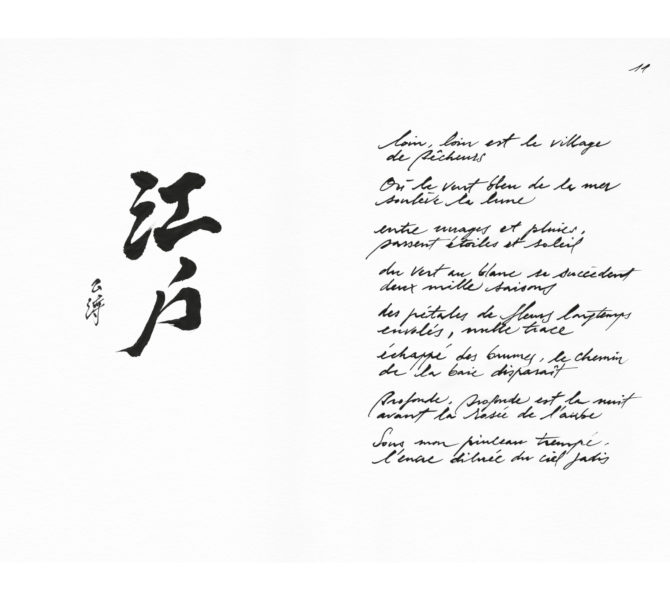 江戸
11
loin, loin est le village
de pêcheurs
Où le vent bleu de la mer
soulève la lune
entre nuages et pluies,
passent étoiles et soleil
du vert au blanc se succèdent
deux mille saisons
des pétales de fleurs longtemps
envolés, nulle trace
échappé des brumes, le chemin
de la baie disparaît
profonde, profonde est la nuit
avant la rosée de l'aube
Sous mon pinceau trempé,
l'encre diluée du ciel jadis